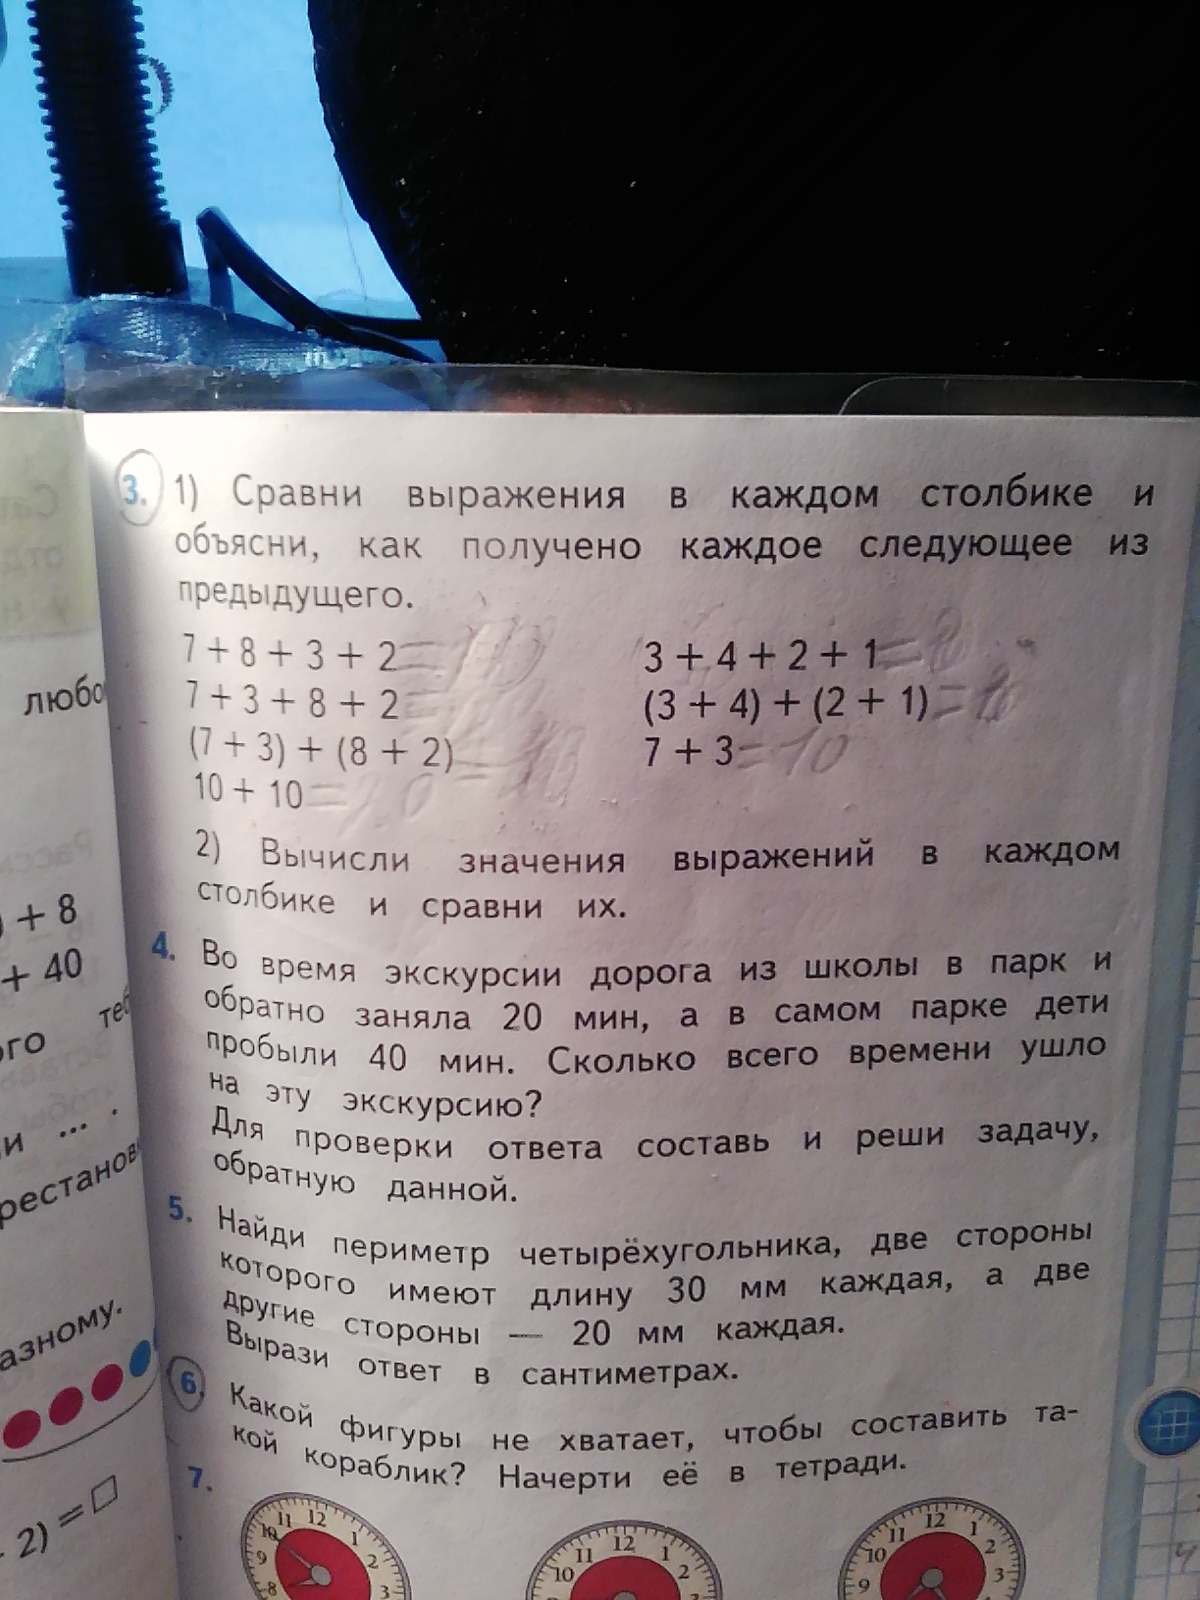 3. 1) Сравни выражения в каждом столбике и
объясни, как получено каждое следующее из
предыдущего.
7 + 8 + 3 + 2 =
3 + 4 + 2 + 1 =
7 + 3 + 8 + 2 =
(3 + 4) + (2 + 1) =
(7 + 3) + (8 + 2) =
7 + 3 = 10
10 + 10 =
2) Вычисли значения выражений в каждом
столбике и сравни их.
4. Во время экскурсии дорога из школы в парк и
обратно заняла 20 мин, а в самом парке дети
пробыли 40 мин. Сколько всего времени ушло
на эту экскурсию?
Для проверки ответа составь и реши задачу,
обратную данной.
5. Найди периметр четырёхугольника, две стороны
которого имеют длину 30 мм каждая, а две
другие стороны — 20 мм каждая.
Вырази ответ в сантиметрах.
6. Какой фигуры не хватает, чтобы составить та-
кой кораблик? Начерти её в тетради.
7.
11 12 1
10 2
9 3
8
11 12 1
10 2
11 12 1
10 2
9 3
любо
) + 8
+ 40
ого теб
и ... .
рестанов
азному.
2) = □